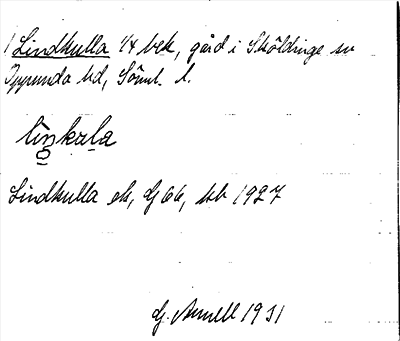 1 Lindkulla 1/4 bek, gård i Sköldinge sn
Oppunda hd, Söml. l.
liŋkala
Lindkulla ek, Gj 66, kb 1927
G. Arnell 1931